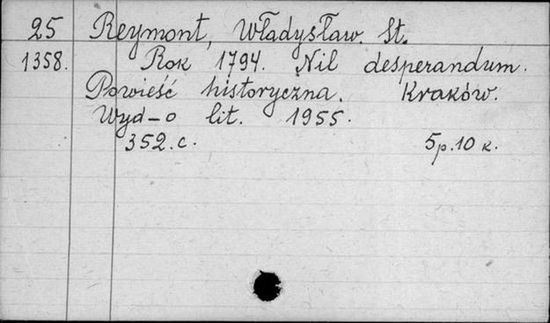 25 Reymont, Władysław. St.
1358. Rok 1794. Nil desperandum.
Powieść historyczna. Kraków.
Wyd-o lit. 1955.
352.c. 5p.10 к.